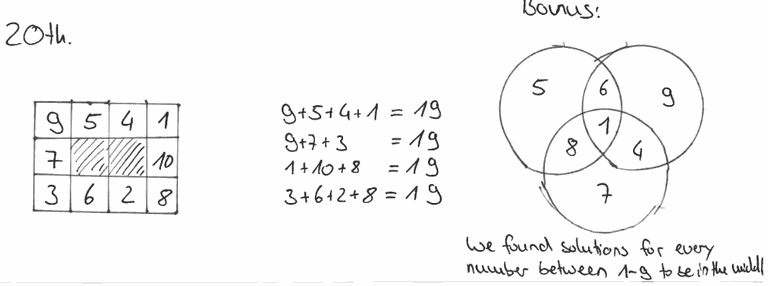 20th.
9 5 4 1
7 10
3 6 2 8
9+5+4+1 = 19
9+7+3 = 19
1+10+8 = 19
3+6+2+8 = 19
Bonus:
5 6 9
1
8 4
7
We found solutions for every
number between 1-9 to be in the middl